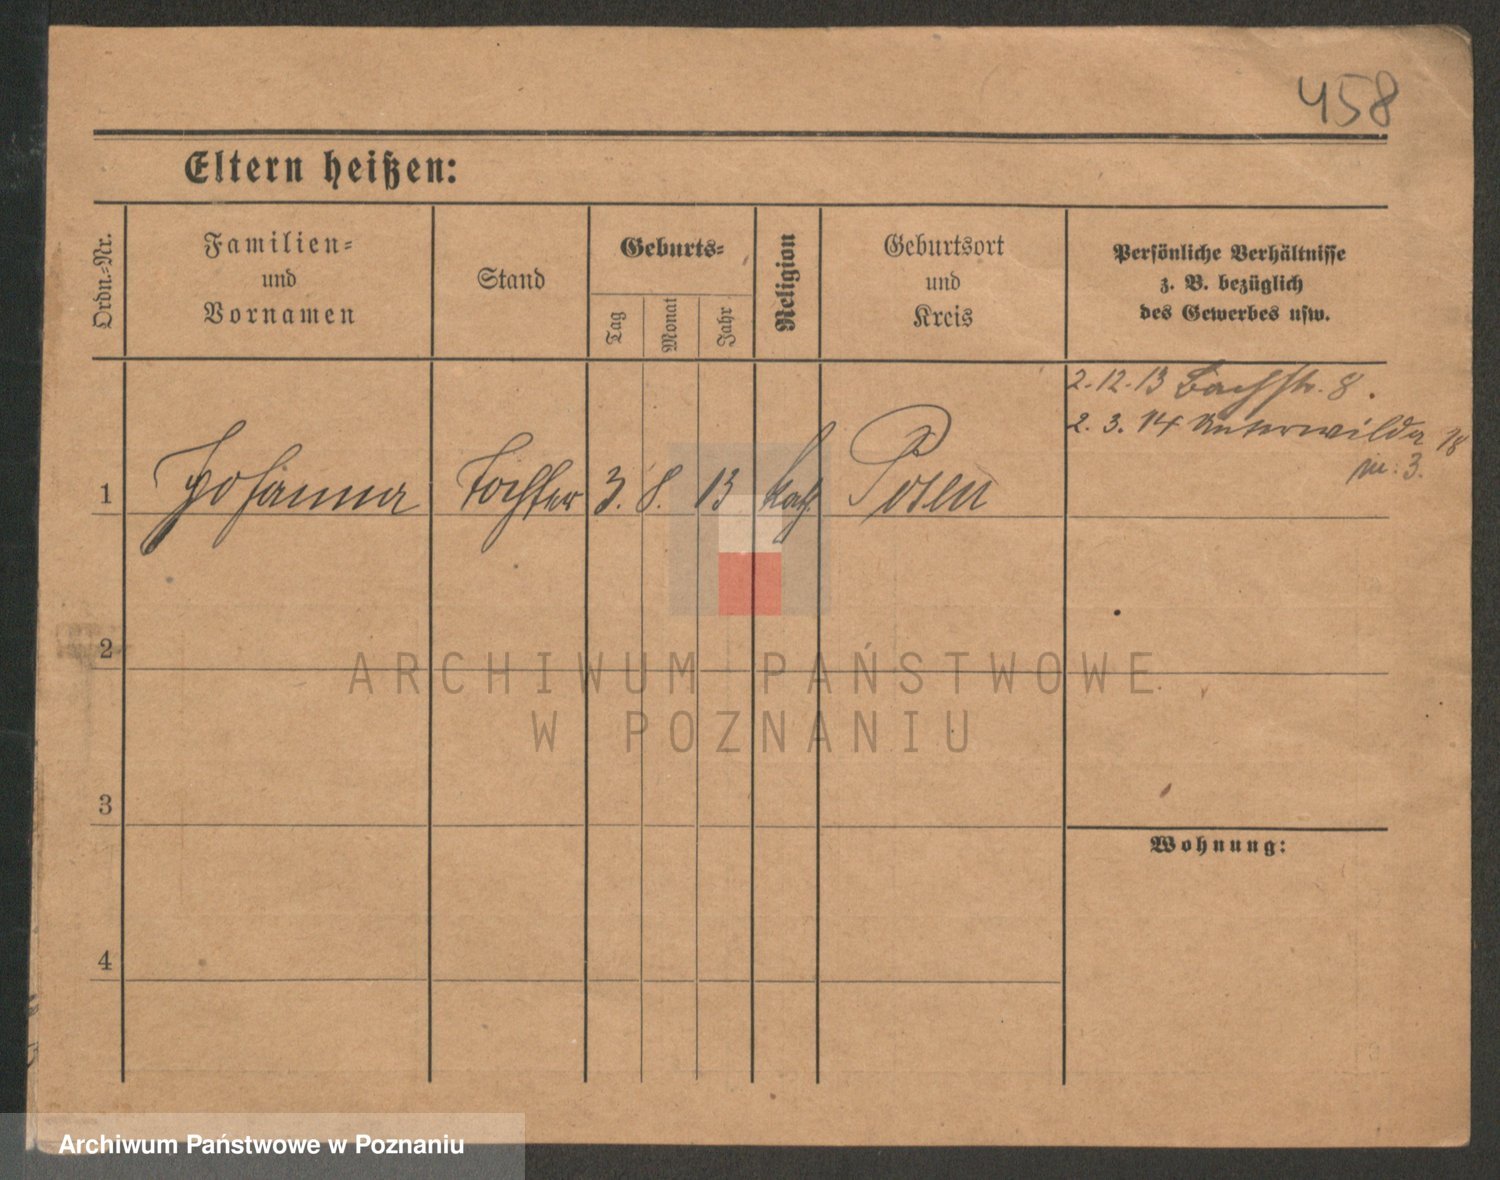 458
Eltern heißen:
Ordn.-Nr.
Familien-
und
Vornamen
Stand
Geburts-
Tag
Monat
Jahr
Religion
Geburtsort
und
Kreis
Persönliche Verhältnisse
z. B. bezüglich
des Gewerbes usw.
2.12.13 Bachstr. 8.
2.3.14 Unterwilda 18
1 Johanna Tochter 3. 8. 13 kath. Posen
2
3
Wohnung:
4
ARCHIWUM PAŃSTWOWE
W POZNANIU
Archiwum Państwowe w Poznaniu